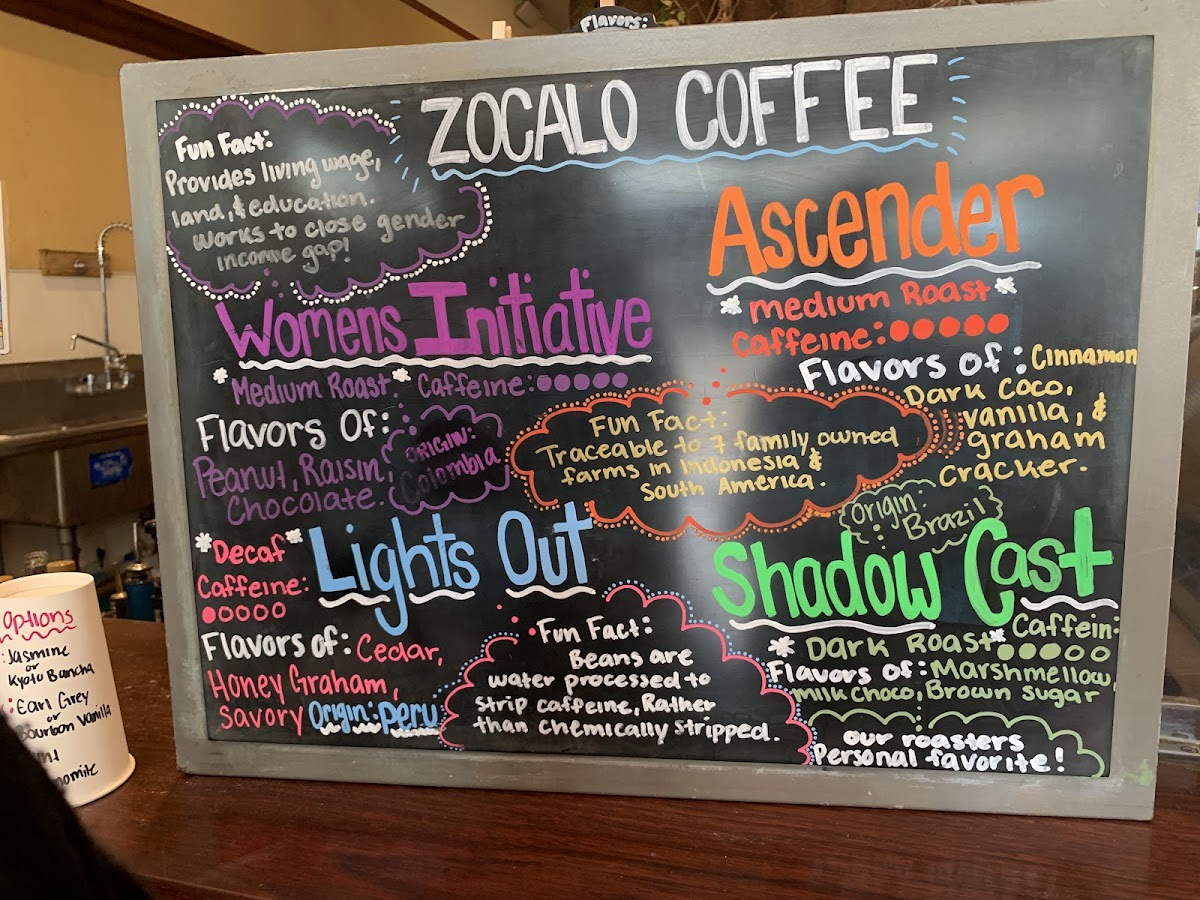 Flavors:
ZOCALO COFFEE
Fun Fact:
Provides living wage,
land, & education.
Works to close gender
income gap!
Womens Initiative
* Medium Roast * Caffeine:
Flavors Of:
Peanut, Raisin,
Chocolate.
ORIGIN:
Colombia
Ascender
* medium Roast *
Caffeine:
Flavors of: Cinnamon
Dark Coco,
vanilla, &
graham
cracker.
Fun Fact:
Traceable to 7 family owned
farms in Indonesia &
South America.
Lights Out
* Decaf *
Caffeine:
Flavors of: Cedar,
Honey Graham,
savory Origin: Peru
Fun Fact:
Beans are
water processed to
strip caffeine, Rather
than chemically stripped.
Origin:
Brazil
Shadow Cast
* Dark Roast * Caffein:
Flavors of: Marshmellow,
milk choco, Brown sugar
our roasters
Personal favorite!
Options
: Jasmine
or
Kyoto Bancha
: Earl Grey
or
Bourbon Vanilla